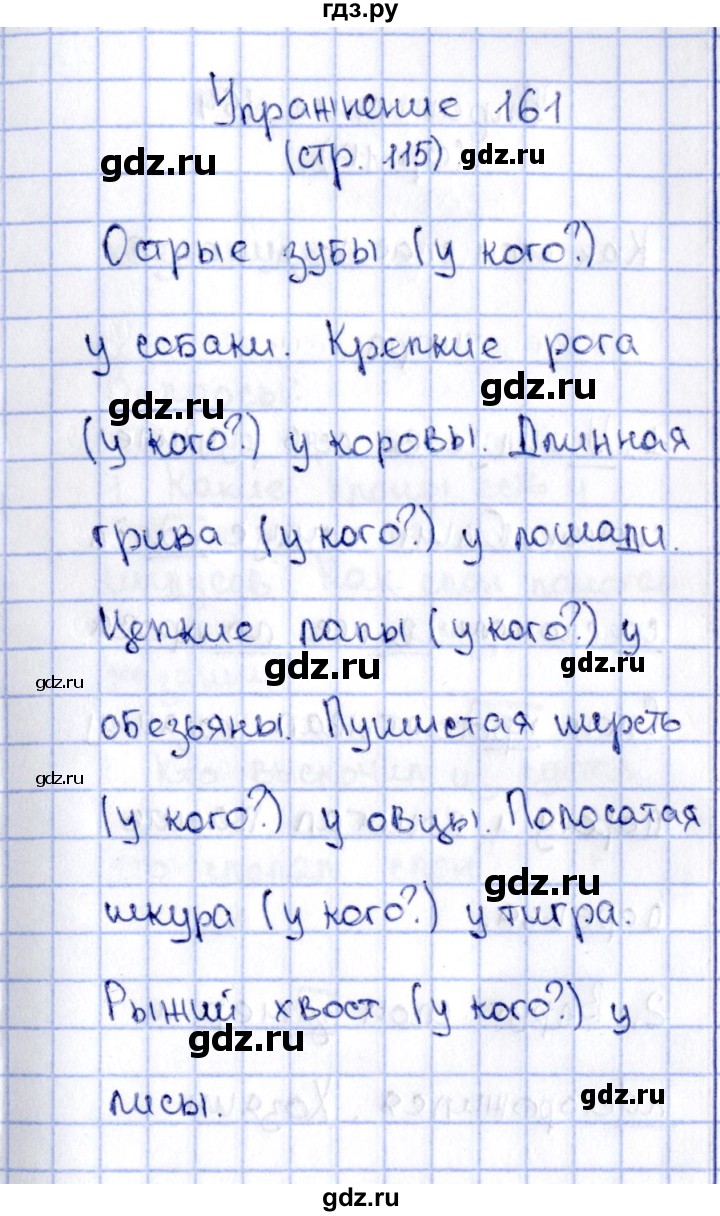 гдз.ру
Упражнение 161
gdz.ru (стр. 115) gdz.ru
Острые зубы (у кого?)
у собаки. Крепкие рога
gdz.ru gdz.ru
(у кого?) у коровы. Длинная
грива (у кого?) у лошади.
Цепкие лапы (у кого?) у
gdz.ru gdz.ru gdz.ru
обезьяны. Пушистая шерсть
gdz.ru
(у кого?) у овцы. Полосатая
gdz.ru
шкура (у кого?) у тигра.
Рыжий хвост (у кого?) у
gdz.ru
лисы. gdz.ru
gdz.ru